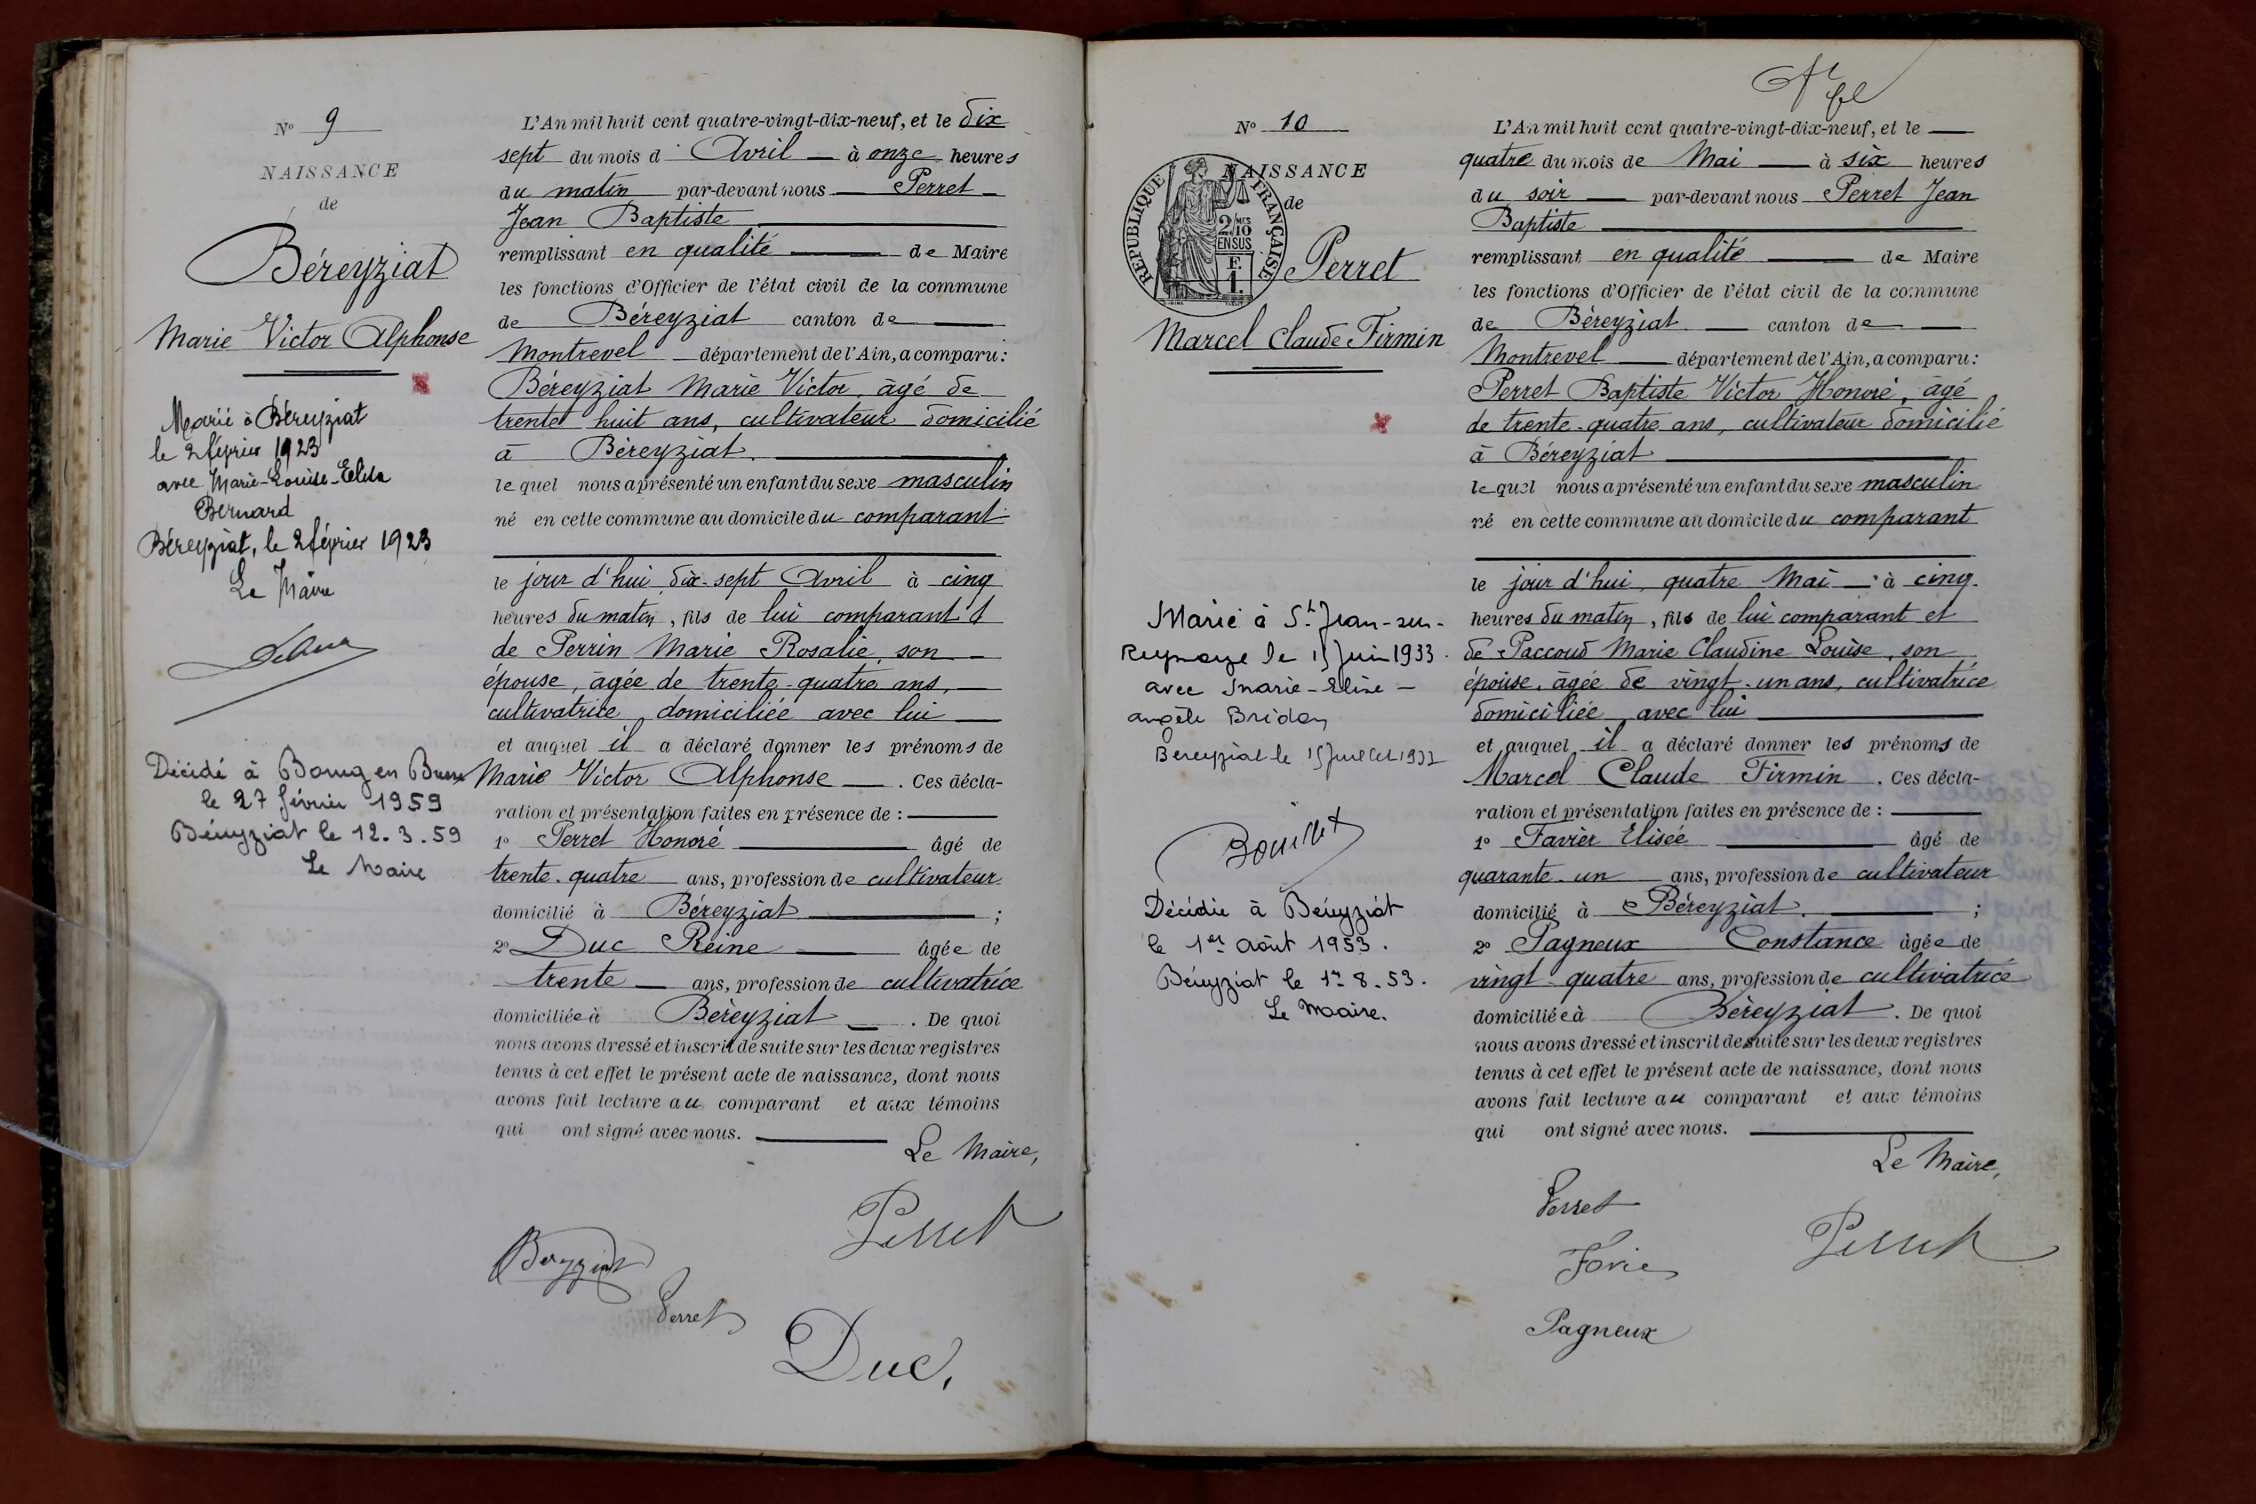 Nº 9
NAISSANCE
de
Béreyziat
Marie Victor Alphonse
Marié à Béreyziat
le 2 février 1923
avec Marie-Louise-Elisa
Bernard
Béreyziat, le 2 février 1923
Le Maire
Décédé à Bourg en Bresse
le 27 février 1959
Béreyziat le 12.3.59
Le Maire
L'An mil huit cent quatre-vingt-dix-neuf, et le dix
sept du mois d'Avril à onze heures
du matin par-devant nous Perret
Jean Baptiste
remplissant en qualité de Maire
les fonctions d'Officier de l'état civil de la commune
de Béreyziat canton de
Montrevel département de l'Ain, a comparu :
Béreyziat Marie Victor, âgé de
trente huit ans, cultivateur domicilié
à Béreyziat.
lequel nous a présenté un enfant du sexe masculin
né en cette commune au domicile du comparant
le jour d'hui, dix-sept Avril à cinq
heures du matin, fils de lui comparant et
de Perrin Marie Rosalie, son
épouse, âgée de trente-quatre ans,
cultivatrice domiciliée avec lui
et auquel il a déclaré donner les prénoms de
Marie Victor Alphonse. Ces décla-
ration et présentation faites en présence de :
1º Perret Honoré âgé de
trente-quatre ans, profession de cultivateur
domicilié à Béreyziat ;
2º Duc Reine âgée de
trente ans, profession de cultivatrice
domiciliée à Béreyziat. De quoi
nous avons dressé et inscrit de suite sur les deux registres
tenus à cet effet le présent acte de naissance, dont nous
avons fait lecture au comparant et aux témoins
qui ont signé avec nous.
Le Maire,
Perret
Béreyziat
Perret
Duc,
Nº 10
NAISSANCE
de
REPUBLIQUE FRANÇAISE
2/10 MES
EN SUS
F.
1.
Perret
Marcel Claude Firmin
Marié à St Jean-sur-
Reyssouze le 15 Juin 1933
avec Marie-Elise
angèle Bridon
Béreyziat le 15 Juillet 1933
Décédé à Béreyziat
le 1er Août 1953.
Béreyziat le 1er 8.53.
Le Maire.
L'An mil huit cent quatre-vingt-dix-neuf, et le
quatre du mois de Mai à six heures
du soir par-devant nous Perret Jean
Baptiste
remplissant en qualité de Maire
les fonctions d'Officier de l'état civil de la commune
de Béreyziat canton de
Montrevel département de l'Ain, a comparu :
Perret Baptiste Victor Honoré, âgé
de trente-quatre ans, cultivateur domicilié
à Béreyziat
lequel nous a présenté un enfant du sexe masculin
né en cette commune au domicile du comparant
le jour d'hui, quatre Mai à cinq
heures du matin, fils de lui comparant et
de Paccoud Marie Claudine Louise, son
épouse, âgée de vingt-un ans, cultivatrice
domiciliée avec lui
et auquel il a déclaré donner les prénoms de
Marcel Claude Firmin. Ces décla-
ration et présentation faites en présence de :
1º Favier Elisée âgé de
quarante-un ans, profession de cultivateur
domicilié à Béreyziat. ;
2º Pagneux Constance âgée de
vingt-quatre ans, profession de cultivatrice
domiciliée à Béreyziat. De quoi
nous avons dressé et inscrit de suite sur les deux registres
tenus à cet effet le présent acte de naissance, dont nous
avons fait lecture au comparant et aux témoins
qui ont signé avec nous.
Le Maire,
Perret
Perret
Favier
Pagneux